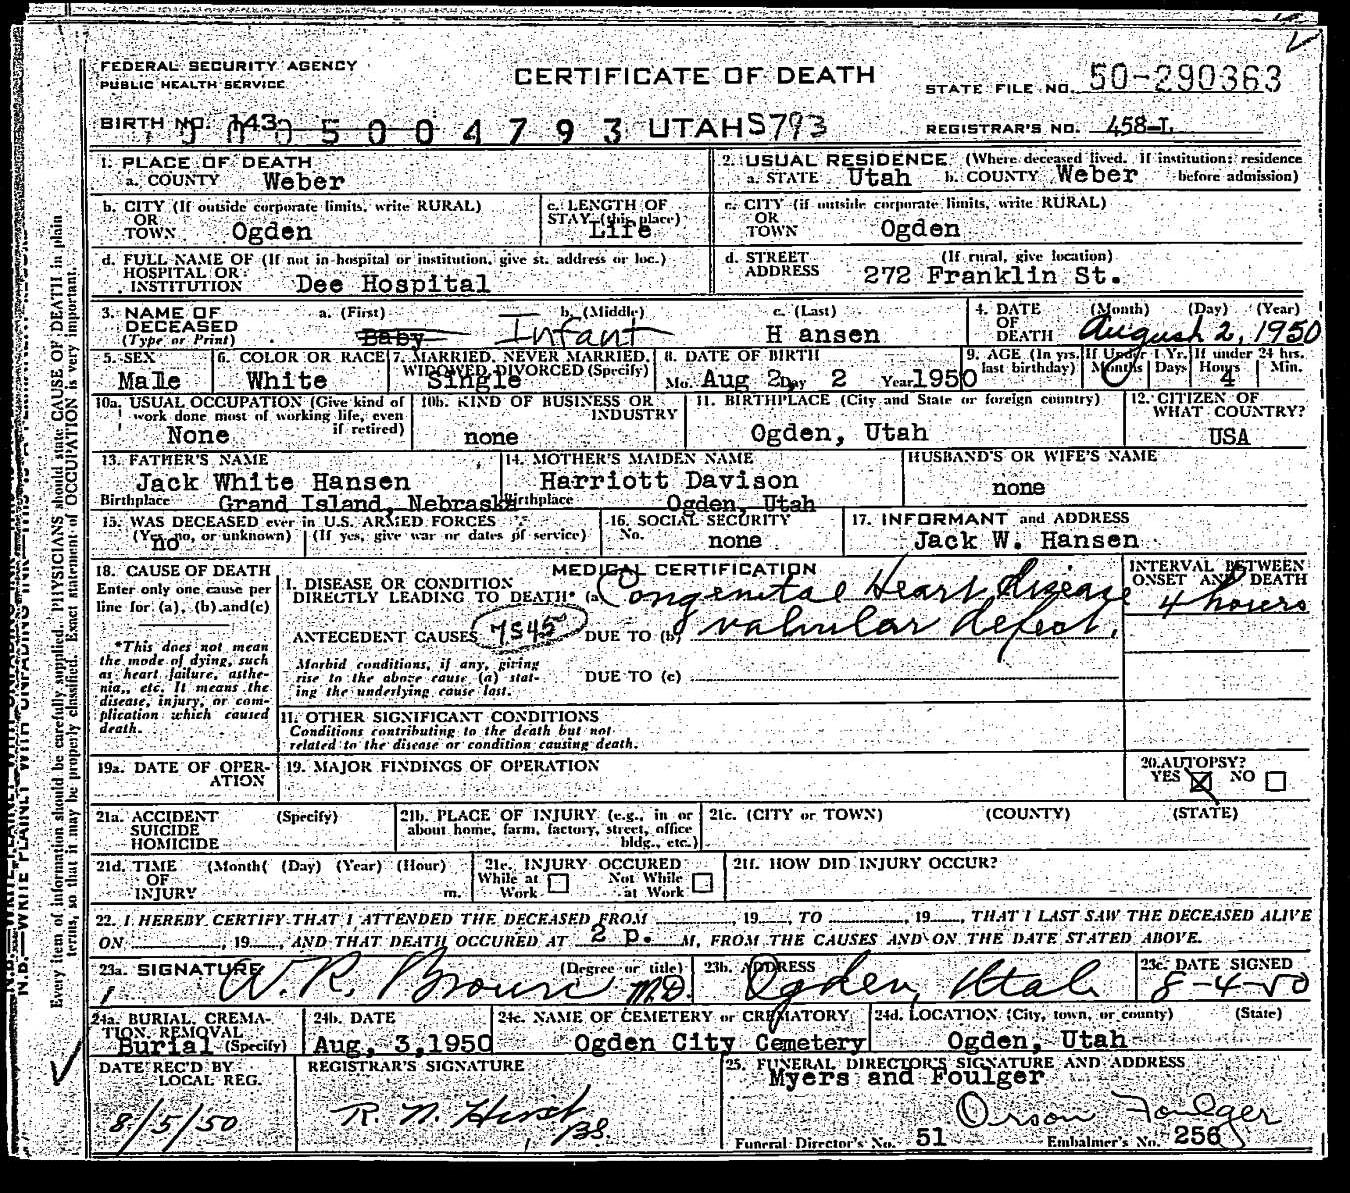 FEDERAL SECURITY AGENCY
PUBLIC HEALTH SERVICE
CERTIFICATE OF DEATH
STATE FILE NO. 50-290363
BIRTH NO. 143 5004793 UTAH S793
REGISTRAR'S NO. 458-L
1. PLACE OF DEATH
a. COUNTY Weber
2. USUAL RESIDENCE (Where deceased lived. If institution: residence before admission)
a. STATE Utah b. COUNTY Weber
b. CITY (If outside corporate limits, write RURAL)
OR
TOWN Ogden
c. LENGTH OF
STAY (this place)
Life
c. CITY (if outside corporate limits, write RURAL)
OR
TOWN Ogden
d. FULL NAME OF (If not in hospital or institution, give st. address or loc.)
HOSPITAL OR
INSTITUTION Dee Hospital
d. STREET (If rural, give location)
ADDRESS 272 Franklin St.
3. NAME OF a. (First) b. (Middle) c. (Last)
DECEASED
(Type or Print) Baby Infant Hansen
4. DATE (Month) (Day) (Year)
OF
DEATH August 2, 1950
5. SEX
Male
6. COLOR OR RACE
White
7. MARRIED, NEVER MARRIED,
WIDOWED DIVORCED (Specify)
Single
8. DATE OF BIRTH
Mo. Aug 2 Day 2 Year 1950
9. AGE (In yrs. If Under 1 Yr. If under 24 hrs.
last birthday) Months Days Hours Min.
4
10a. USUAL OCCUPATION (Give kind of
work done most of working life, even
if retired)
None
10b. KIND OF BUSINESS OR
INDUSTRY
none
11. BIRTHPLACE (City and State or foreign country)
Ogden, Utah
12. CITIZEN OF
WHAT COUNTRY?
USA
13. FATHER'S NAME
Jack White Hansen
Birthplace Grand Island, Nebraska
14. MOTHER'S MAIDEN NAME
Harriott Davison
Birthplace Ogden, Utah
HUSBAND'S OR WIFE'S NAME
none
15. WAS DECEASED ever in U.S. ARMED FORCES
(Yes, no, or unknown) (If yes, give war or dates of service)
no
16. SOCIAL SECURITY
No. none
17. INFORMANT and ADDRESS
Jack W. Hansen
18. CAUSE OF DEATH
Enter only one cause per
line for (a), (b) and (c)
*This does not mean
the mode of dying, such
as heart failure, asthe-
nia, etc. It means the
disease, injury, or com-
plication which caused
death.
MEDICAL CERTIFICATION
I. DISEASE OR CONDITION
DIRECTLY LEADING TO DEATH* (a) Congenital Heart disease
ANTECEDENT CAUSES 7545 DUE TO (b) valvular defect.
Morbid conditions, if any, giving
rise to the above cause (a) stat-
ing the underlying cause last.
DUE TO (c)
II. OTHER SIGNIFICANT CONDITIONS
Conditions contributing to the death but not
related to the disease or condition causing death.
INTERVAL BETWEEN
ONSET AND DEATH
4 hours
19a. DATE OF OPER-
ATION
19. MAJOR FINDINGS OF OPERATION
20. AUTOPSY?
YES NO
21a. ACCIDENT (Specify)
SUICIDE
HOMICIDE
21b. PLACE OF INJURY (e.g., in or
about home, farm, factory, street, office
bldg., etc.)
21c. (CITY or TOWN) (COUNTY) (STATE)
21d. TIME (Month( (Day) (Year) (Hour)
OF
INJURY m.
21e. INJURY OCCURED
While at Not While
Work at Work
21f. HOW DID INJURY OCCUR?
22. I HEREBY CERTIFY THAT I ATTENDED THE DECEASED FROM , 19 , TO , 19 , THAT I LAST SAW THE DECEASED ALIVE
ON , 19 , AND THAT DEATH OCCURED AT 2 p. M, FROM THE CAUSES AND ON THE DATE STATED ABOVE.
23a. SIGNATURE (Degree or title)
W. R. Brown M.D.
23b. ADDRESS
Ogden, Utah
23c. DATE SIGNED
8-4-50
24a. BURIAL, CREMA-
TION, REMOVAL
Burial (Specify)
24b. DATE
Aug, 3, 1950
24c. NAME OF CEMETERY or CREMATORY
Ogden City Cemetery
24d. LOCATION (City, town, or county) (State)
Ogden, Utah
DATE REC'D BY
LOCAL REG.
8/5/50
REGISTRAR'S SIGNATURE
R. N. Hirst BS.
25. FUNERAL DIRECTOR'S SIGNATURE AND ADDRESS
Myers and Foulger
Orson Foulger
Funeral Director's No. 51 Embalmer's No. 256
N.B.—WRITE PLAINLY WITH UNFADING INK
Every item of information should be carefully supplied. PHYSICIANS should state CAUSE OF DEATH in plain
terms, so that it may be properly classified. Exact statement of OCCUPATION is very important.